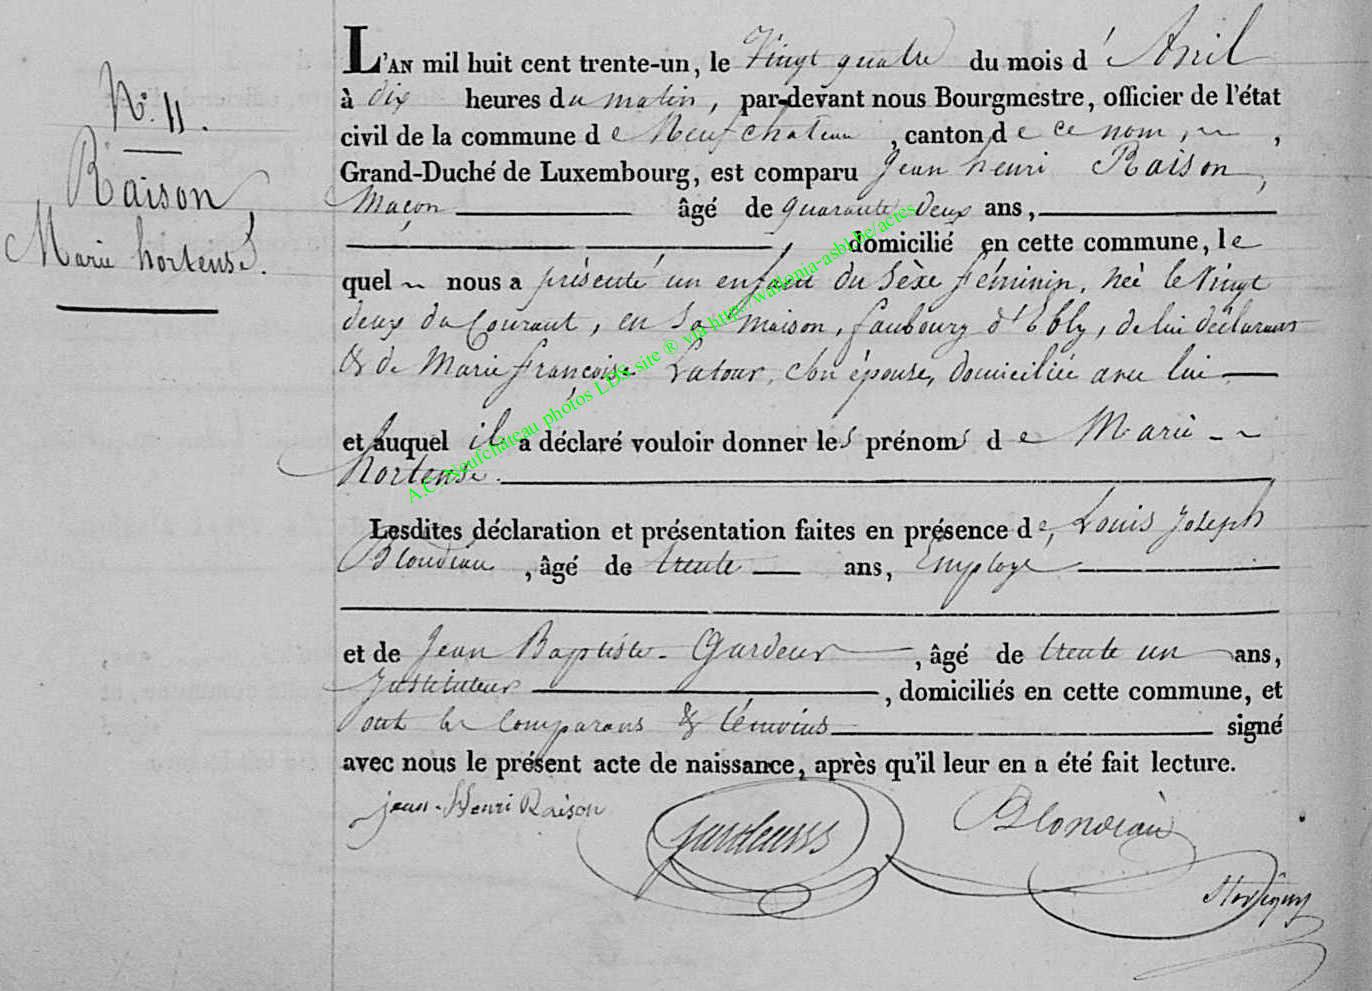 N.° 11.
Raison
Marie hortense.
L'AN mil huit cent trente-un, le Vingt quatre du mois d'Avril
à dix heures du matin, par-devant nous Bourgmestre, officier de l'état
civil de la commune de Neufchateau, canton de ce nom,
Grand-Duché de Luxembourg, est comparu Jean henri Raison,
Maçon âgé de quarante Deux ans,
domicilié en cette commune, le
quel nous a présenté un enfant du sèxe féminin, née le Vingt
deux du Courant, en sa maison, faubourg d'Ebly, de lui déclarant
& de Marie françoise Latour, son épouse, domiciliée avec lui
et auquel il a déclaré vouloir donner les prénoms de Marie
Hortense.
Lesdites déclaration et présentation faites en présence de, Louis Joseph
Blondeau, âgé de trente ans, Employé
et de Jean Baptiste Gardeur, âgé de trente un ans,
Instituteur, domiciliés en cette commune, et
ont les Comparans & témoins signé
avec nous le présent acte de naissance, après qu'il leur en a été fait lecture.
jean-Henri Raison
Blondeau
A.C. Neufchateau photos LDS site ® via http://wallonia-asbl.be/actes